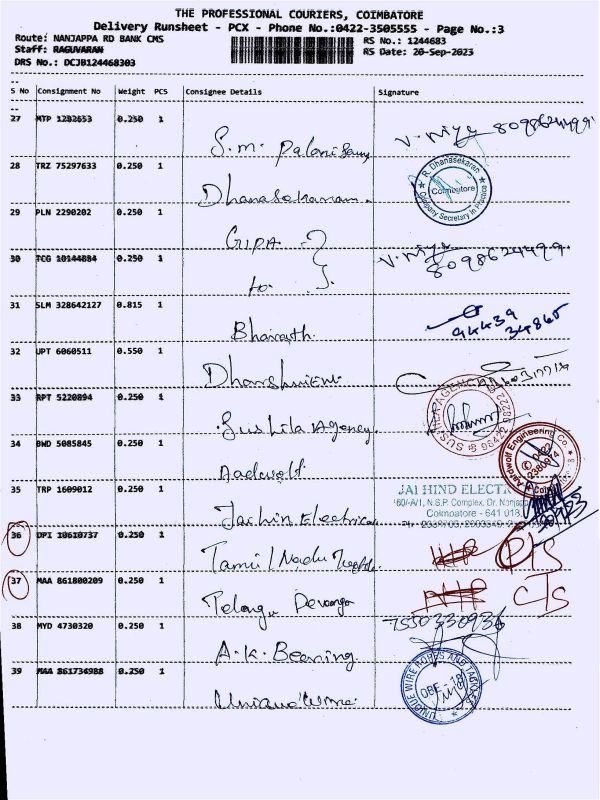 THE PROFESSIONAL COURIERS, COIMBATORE
Delivery Runsheet - PCX - Phone No.:0422-3505555 - Page No.:3
Route: NANJAPPA RD BANK CMS RS No.: 1244683
Staff: RAGUVARAN RS Date: 20-Sep-2023
DRS No.: DCJB124468303
S No Consignment No Weight PCS Consignee Details Signature
27 MTP 1282653 0.250 1 S.M. Palanisamy V. 8098624499
28 TRZ 75297633 0.250 1 Dhanasekaran R. Dhanasekaran Coimbatore Company Secretary in Practice
29 PLN 2290202 0.250 1 GIPA
30 TCG 10144884 0.250 1 to V. 8098624499
31 SLM 328642127 0.815 1 Bharath 94439 34865
32 UPT 6060511 0.550 1
33 RPT 5220894 0.250 1 Sushila Agency SUSHILA AGENCY
34 BWD 5085845 0.250 1 Aadwolf Aardwolf Engineering Co. 0422 2380974
35 TRP 1609012 0.250 1 Jachin Electrical JAI HIND ELECTR
N.S.P. Complex, Dr. Nanjap
Coimbatore - 641 018.
36 DPI 10610737 0.250 1 Tamil Nadu
37 MAA 861800209 0.250 1 Telangu Devanga CTS
38 MYD 4730320 0.250 1 A.K. Beening 7550330936
39 MAA 861734988 0.250 1 UNIQUE WIRE ROPES AND TACKLES